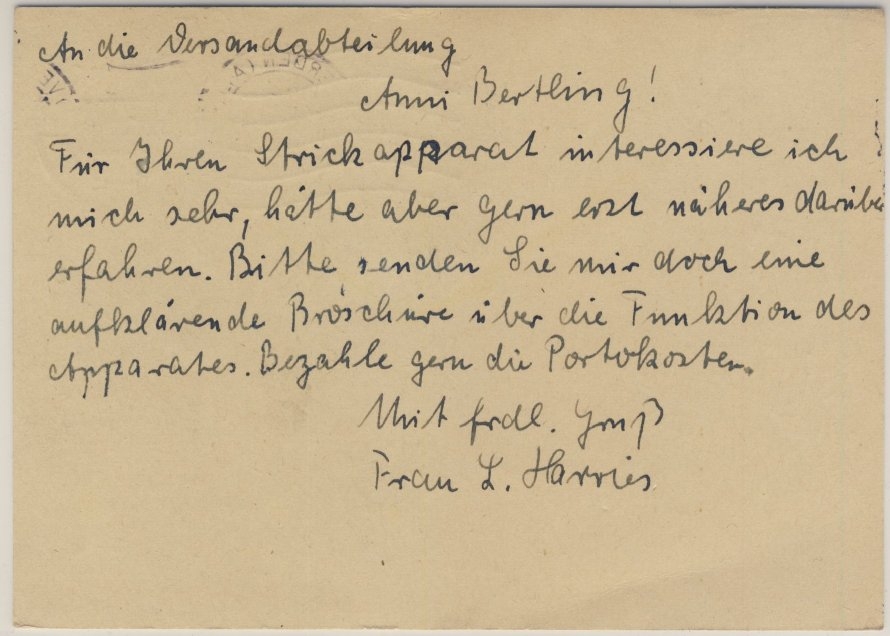 An die Versandabteilung
Anni Bertling!
Für Ihren Strickapparat interessiere ich
mich sehr, hätte aber gern erst näheres darüber
erfahren. Bitte senden Sie mir doch eine
aufklärende Bröschüre über die Funktion des
Apparates. Bezahle gern die Portokosten.
Mit frdl. Gruß
Frau L. Harries